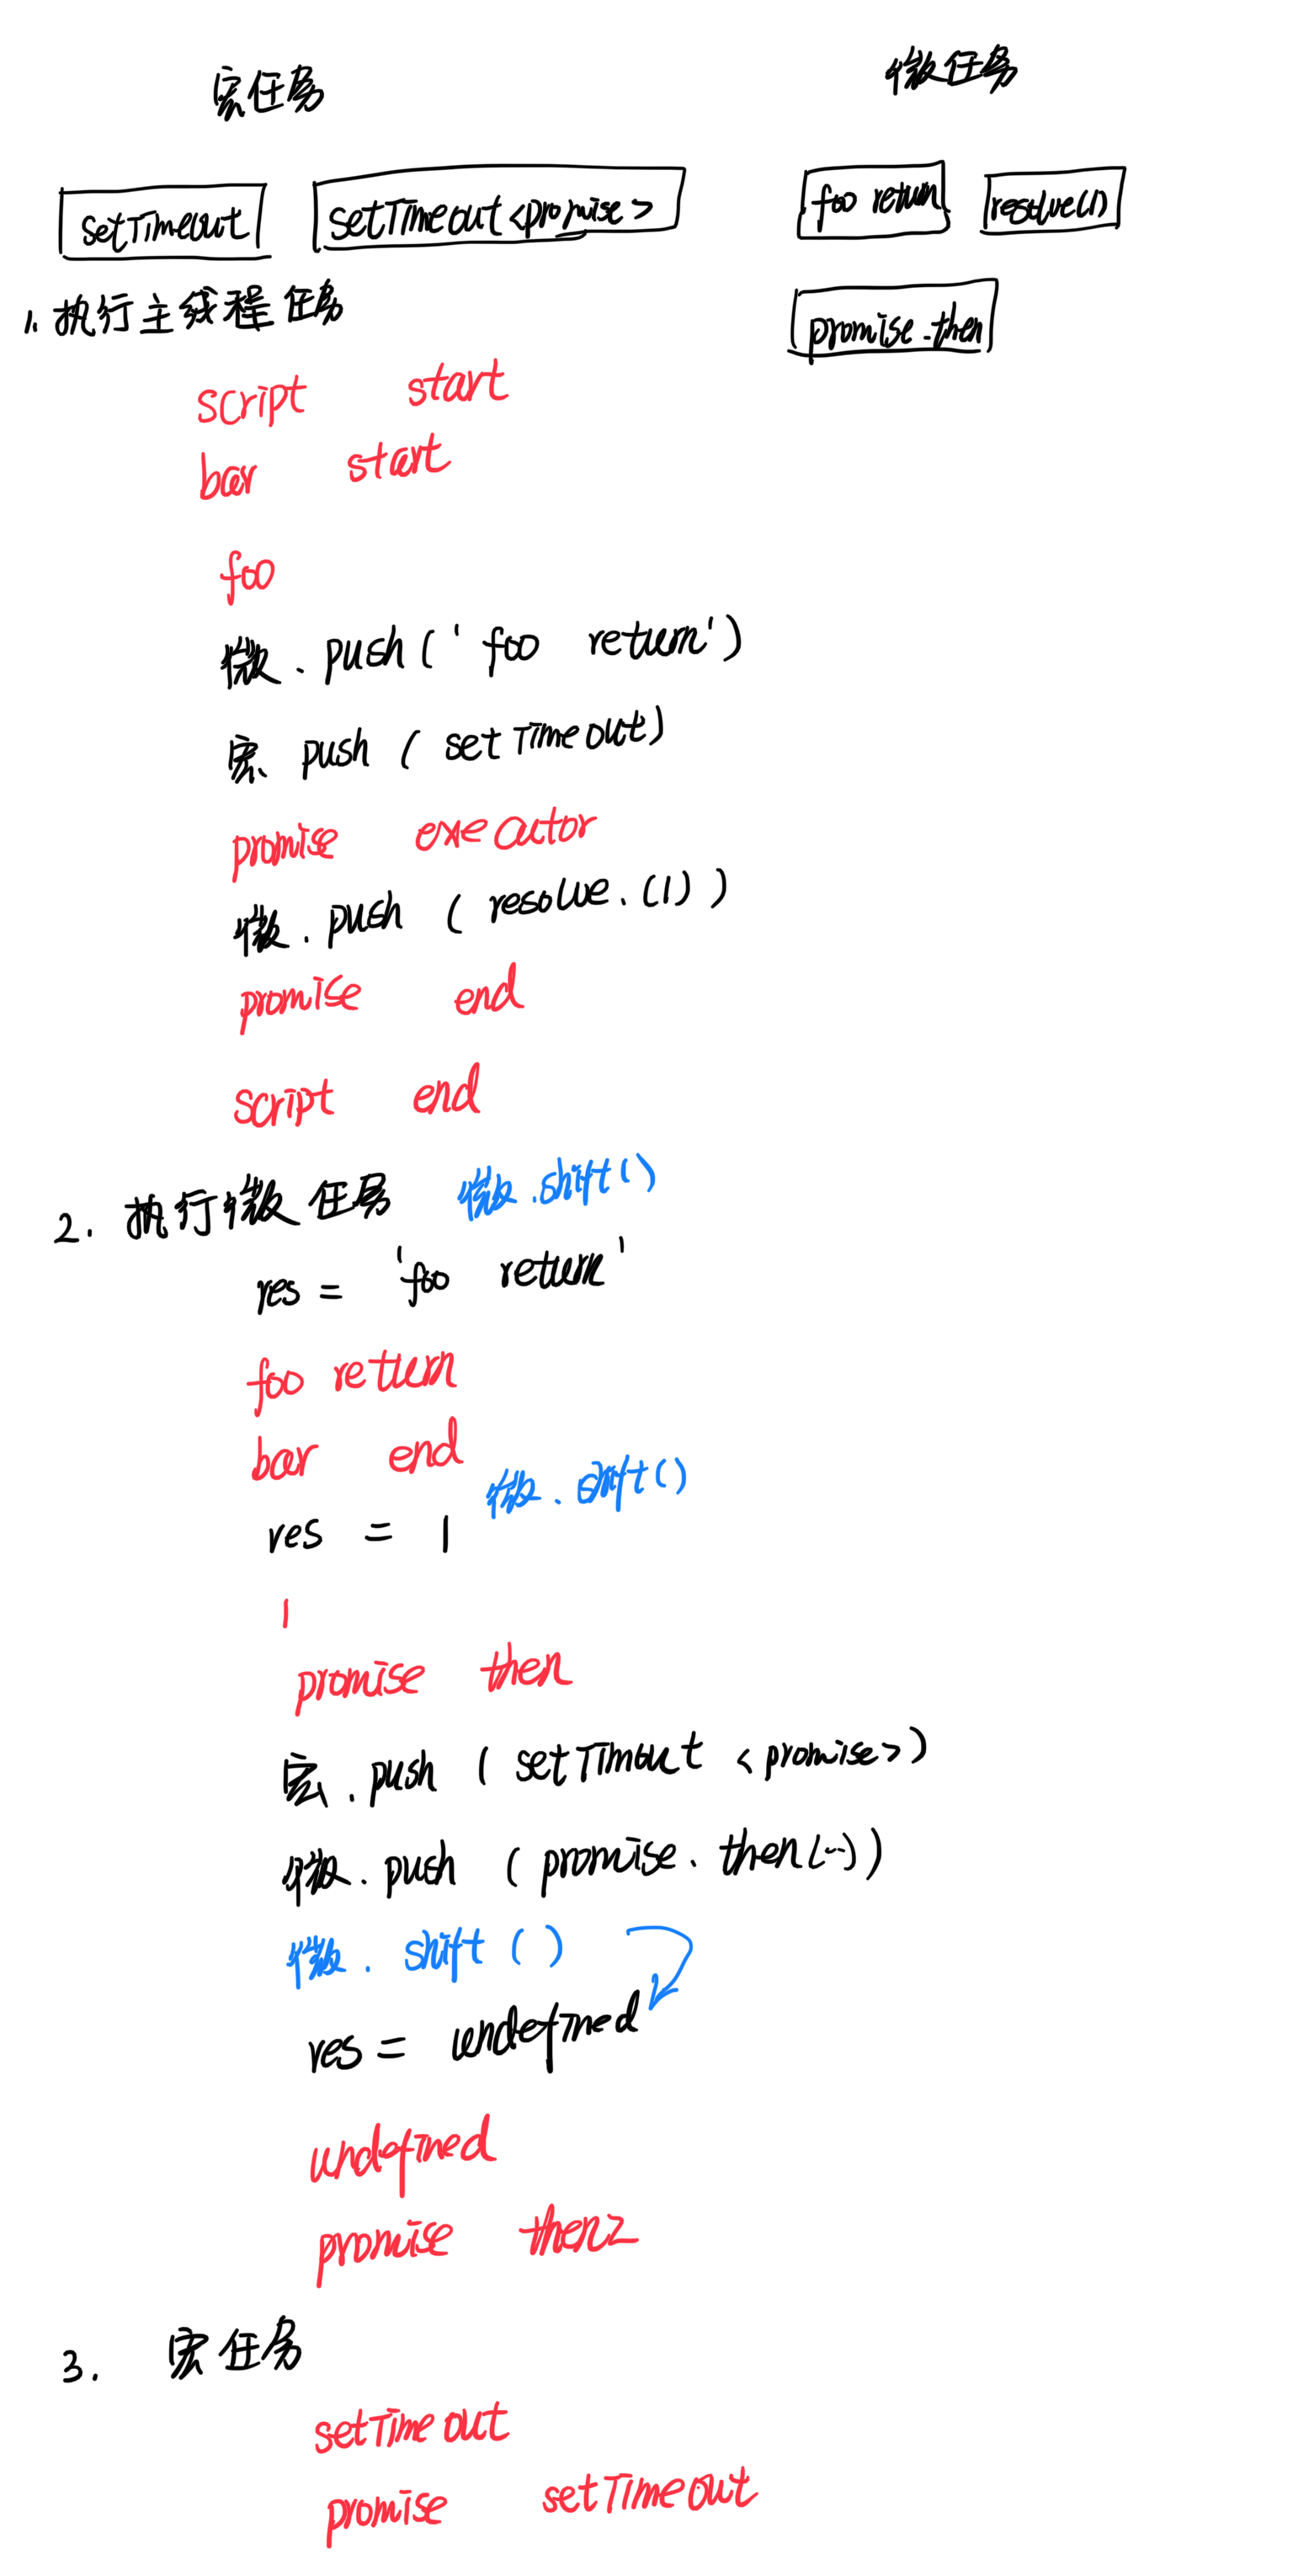 宏任务 微任务
setTimeout setTimeout<promise> foo return resolve(1)
promise.then
1. 执行主线程任务
script start
bar start
foo
微.push('foo return')
宏.push(setTimeout)
promise executor
微.push(resolve.(1))
promise end
script end
2. 执行微任务 微.shift()
res = 'foo return'
foo return
bar end
微.shift()
res = 1
1
promise then
宏.push(setTimout <promise>)
微.push(promise.then(…))
微.shift()
res = undefined
undefined
promise then2
3. 宏任务
setTimeout
promise setTimeout